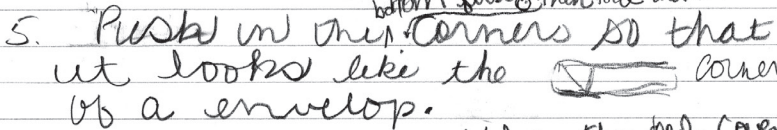 bottom
5. Push in the corners so that
it looks like the corner
of a envelop.